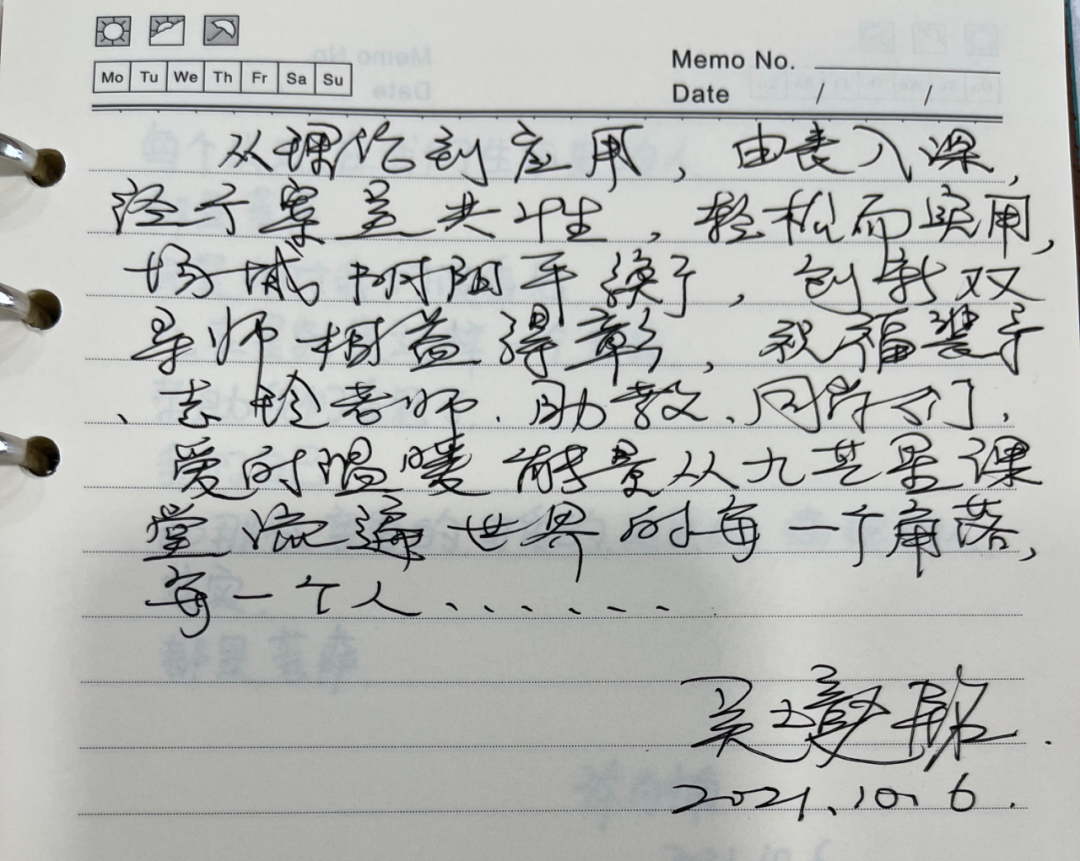 Mo Tu We Th Fr Sa Su
Memo No.
Date / /
从理论到应用，由表入深，
经于案呈共性，轻松而实用，
场域时阴平换了，创新双
导师相益得彰，祝福裴宇
、志玲老师、助教、同学们，
爱的温暖能量从九芒星课
堂流遍世界的每一个角落，
每一个人、、、、、、
吴
2021.10.6.